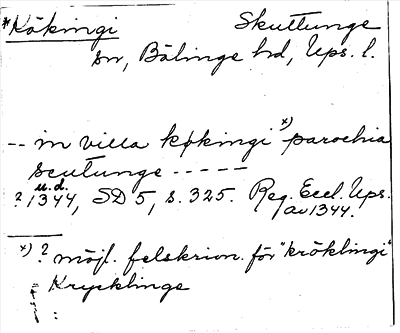 *Kökingi Skuttunge
sn, Bälinge hd, Ups. l.
-- in villa køkingi x) parochia
scutunge -----
u.d.
? 1344, SD 5, s. 325. Reg. Eccl. Ups.
av 1344.
x) ? möjl. felskrivn. för "kröklingi"
Krycklinge